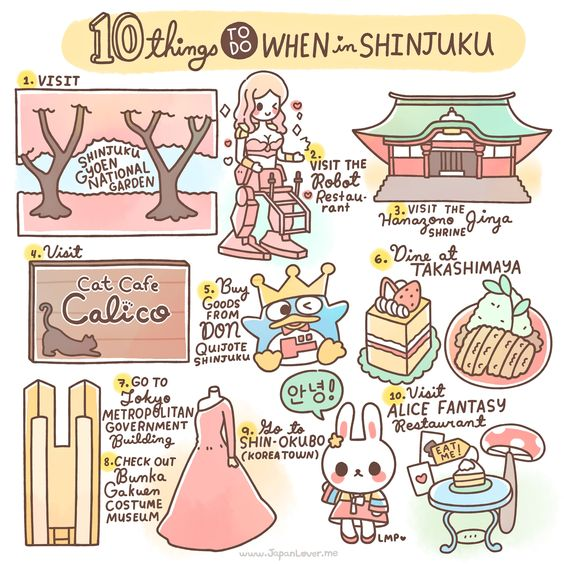 10 things TO DO WHEN in SHINJUKU
1. VISIT
SHINJUKU
GYOEN
NATIONAL
GARDEN
2.
VISIT THE
Robot
Restau-
rant
3. VISIT THE
Hanazono Jinja
SHRINE
4. Visit
Cat Cafe
Calico
5. Buy
GOODS
FROM
DON
QUIJOTE
SHINJUKU
6. Dine at
TAKASHIMAYA
7. GO TO
Tokyo
METROPOLITAN
GOVERNMENT
Building
8. CHECK OUT
Bunka
Gakuen
COSTUME
MUSEUM
안녕!
9. Go to
SHIN-OKUBO
(KOREA TOWN)
10. Visit
ALICE FANTASY
Restaurant
EAT
ME!
LMP
www.JapanLover.me